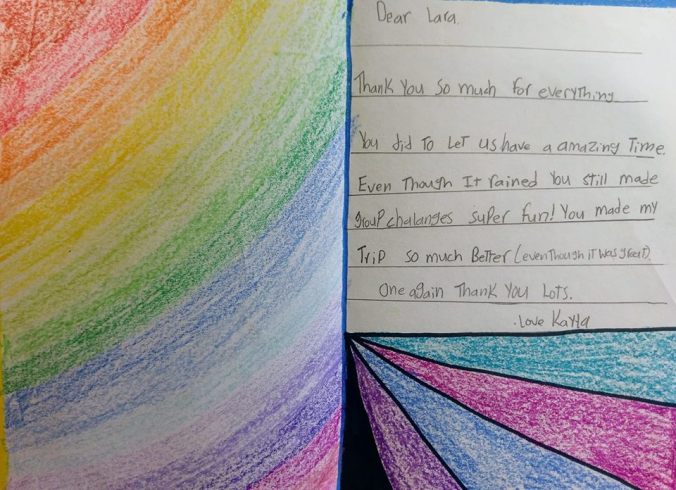 Dear Lara,
Thank You So much for everything
You did To Let us have a amazing Time.
Even Though It rained You still made
group chalanges super fun! You made my
Trip so much Better (even Though it was great)
One again Thank You Lots.
Love Kayla